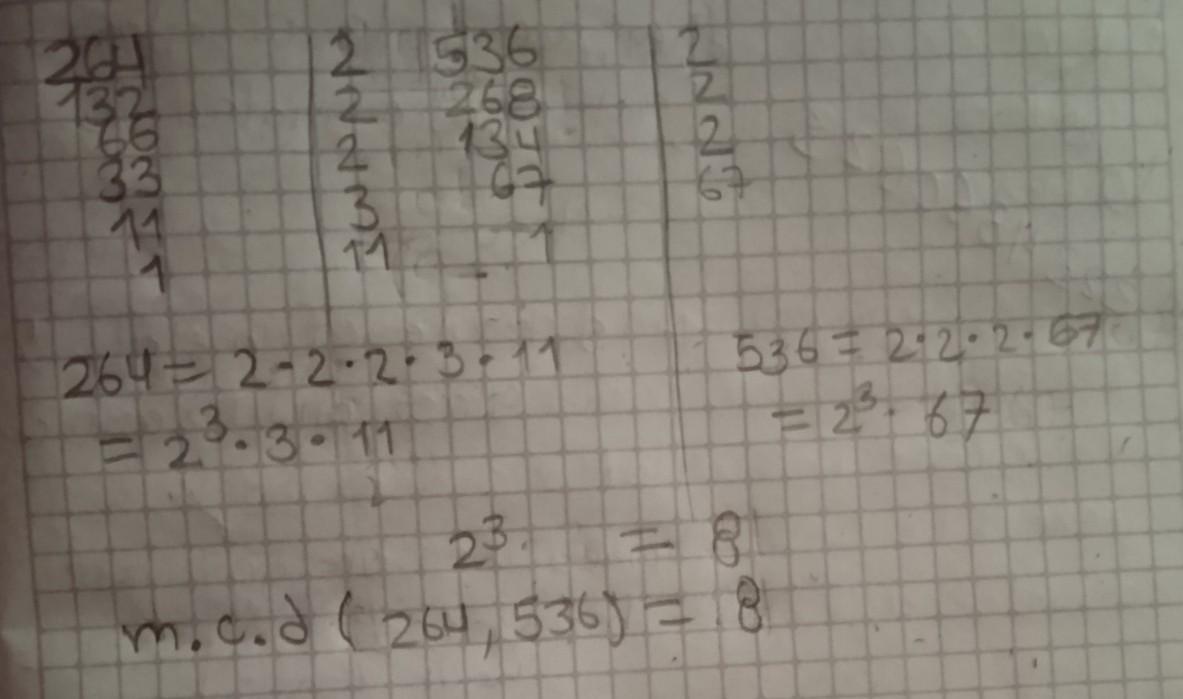 264 | 2 536 | 2
132 | 2 268 | 2
66 | 2 134 | 2
33 | 3 67 | 67
11 | 11 1
1
264 = 2 · 2 · 2 · 3 · 11 536 = 2 · 2 · 2 · 67
= 2³ · 3 · 11 = 2³ · 67
2³ = 8
m.c.d (264, 536) = 8